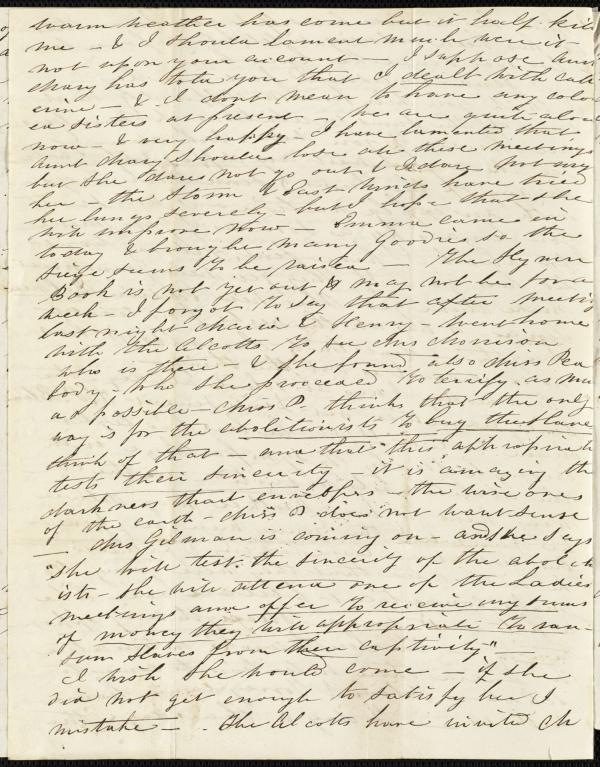 warm weather has come but it half kills
me - & I should lament much were it
not upon your account - I suppose Aunt
Mary has told you that I dealt with Cath
erine - & I dont mean to have any color
ed sisters at present. We are quite alone
now - & very happy - I have lamented that
Aunt Mary should lose all these meetings
but she dares not go out & I dare not urge
her - the storm & East winds have tried
her lungs severely - but I hope that she
will improve now - Emma came in
today & brought many Goodies so the
siege seems to be raised - The Hymn
Book is not yet out & may not be for a
week - I forgot to say that after meeting
last night & Henry - went home
with the Alcotts to see Mrs Morrison
who is there - & she found also Miss Pea
body - who she proceeded to terrify as mu
as possible - Miss P. thinks that the only
way is for the abolitionists to buy the slaves
think of that - and that this appropriate
tests their sincerity - it is amazing the
darkness that envelopes - the wise ones
of the earth - Miss P does not want sense
- Mrs Gilman is coming on - and she says
"she will test the sincerity of the aboli
ists - she will attend one of the Ladies
meetings and offer to receive any sums
of money they will appropriate to ran
som slaves from their captivity" -
I wish she would come - if she
did not get enough to satisfy her I
mistake - . The Alcotts have invited Ch